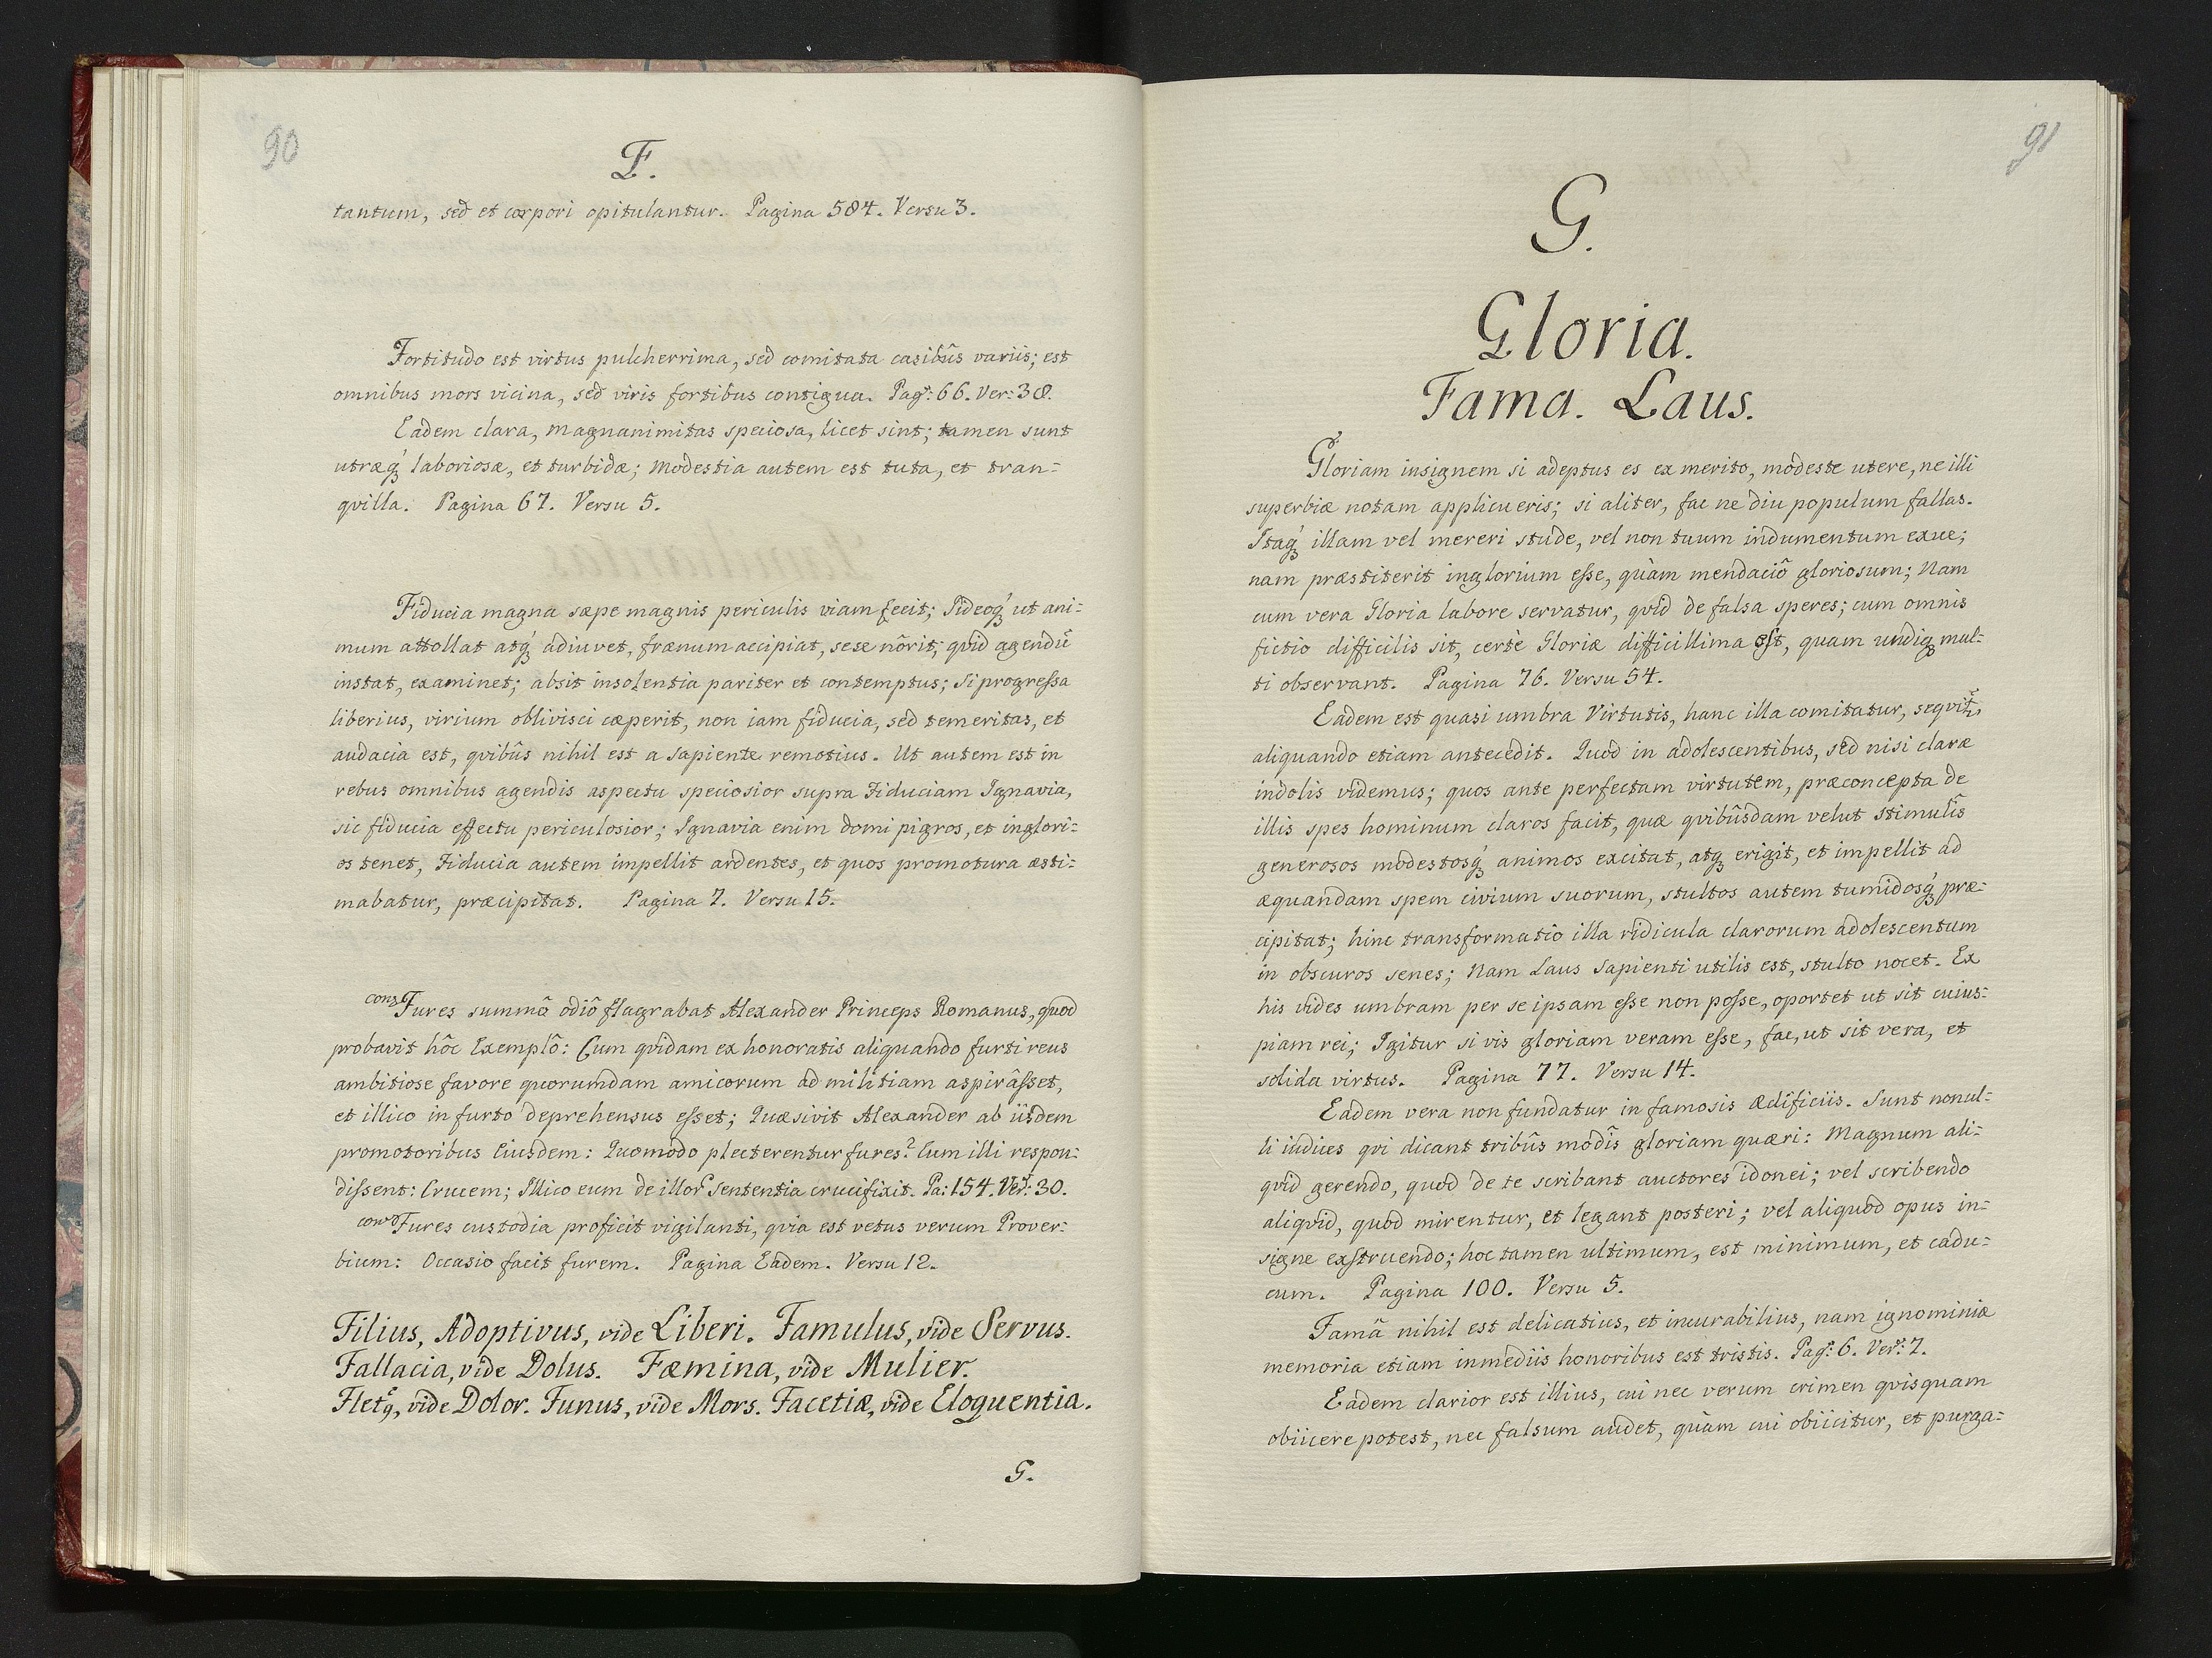 90
F.
tantum, sed et corpori opitulantur. Pagina 584. Versu 3.
Fortitudo est virtus pulcherrima, sed comitata casibûs variis; est
omnibus mors vicina, sed viris fortibus contigua. Pagᵃ: 66. Ver: 38.
Eadem clara, magnanimitas speciosa, licet sint; tamen sunt
utræq́ꝫ laboriosæ, et turbidæ; Modestia autem est tuta, et tran=
qvilla. Pagina 67. Versu 5.
Fiducia magna sæpe magnis periculis viam fecit; Sideoq́ꝫ ut ani=
mum attollat atq́ꝫ adiuvet, frænum accipiat, sese nôrit; qvid agendũ
instat, examinet; absit insolentia pariter et contemptus; Si progressa
liberius, virium oblivisci cæperit, non iam fiducia, sed temeritas, et
audacia est, qvibûs nihil est a Sapiente remotius. Ut autem est in
rebus omnibus agendis aspectu speciosior supra Fiduciam Ignavia,
sic fiducia effectu periculosior; Ignavia enim domi pigros, et inglori=
os tenet, Fiducia autem impellit ardentes, et quos promotura æsti=
mabatur, præcipitat. Pagina 7. Versu 15.
cons Fures summô odiô flagrabat Alexander Princeps Romanus, quod
probavit hôc Exemplô: Cum qvidam ex honoratis aliquando furti reus
ambitiose favore quorumdam amicorum ad militiam aspirâsset,
et illico in furto deprehensus esset; Quæsivit Alexander ab iisdem
promotoribus Eiusdem: Quomodo plecterentur fures? Cum illi respon=
dissent: Crucem; Illico eum de illor̃ sententia crucifixit. Pa: 154. Verᵘ: 30.
con Fures custodia proficit vigilanti, qvia est vetus verum Prover=
bium: Occasio facit furem. Pagina Eadem. Versu 12.
Filius, Adoptivus, vide Liberi. Famulus, vide Servus.
Fallacia, vide Dolus. Fæmina, vide Mulier.
Fletꝰ, vide Dolor. Funus, vide Mors. Facetiæ, vide Eloquentia.
G.
91
G.
Gloria.
Fama. Laus.
Gloriam insignem si adeptus es ex merito, modeste utere, ne illi
superbiæ notam applicueris; si aliter, fac ne diu populum fallas.
Itaq́ꝫ illam vel mereri stude, vel non tuum indumentum exue;
nam præstiterit inglorium esse, quàm mendaciô gloriosum; Nam
cum vera Gloria labore servatur, qvid de falsa speres; cum omnis
fictio difficilis sit, certè Gloriæ difficillima est, quam undiqꝫ mul=
ti observant. Pagina 76. Versu 54.
Eadem est quasi umbra Virtutis, hanc illa comitatur, seqvit̃,
aliquando etiam antecedit. Quod in adolescentibus, sed nisi claræ
indolis videmus; quos ante perfectam virtutem, præconcepta de
illis spes hominum claros facit, quæ qvibûsdam velut stimulîs
generosos modestosq́ꝫ animos excitat, atqꝫ erigit, et impellit ad
æquandam spem civium suorum, stultos autem tumidosq́ꝫ præ=
cipitat; hinc transformatio illa ridicula clarorum adolescentum
in obscuros senes; Nam Laus Sapienti utilis est, stulto nocet. Ex
his vides umbram per se ipsam esse non posse, oportet ut sit cuius=
piam rei; Igitur si vis gloriam veram esse, fac, ut sit vera, et
solida virtus. Pagina 77. Versu 14.
Eadem vera non fundatur in famosis ædificiis. Sunt nonul=
li iudices qvi dicant tribûs modîs gloriam quæri: Magnum ali=
qvid gerendo, quod de te scribant auctores idonei; vel scribendo
aliqvid, quod mirentur, et legant posteri; vel aliquod opus in=
signe exstruendo; hoc tamen ultimum, est minimum, et cadu=
cum. Pagina 100. Versu 5.
Famâ nihil est delicatius, et incurabilius, nam ignominiæ
memoria etiam in mediis honoribus est tristis. Pagᵃ: 6. Verᵘ: 7.
Eadem clarior est illius, cui nec verum crimen qvisquam
obiicere potest, nec falsum audet, quàm cui obiicitur, et purga=